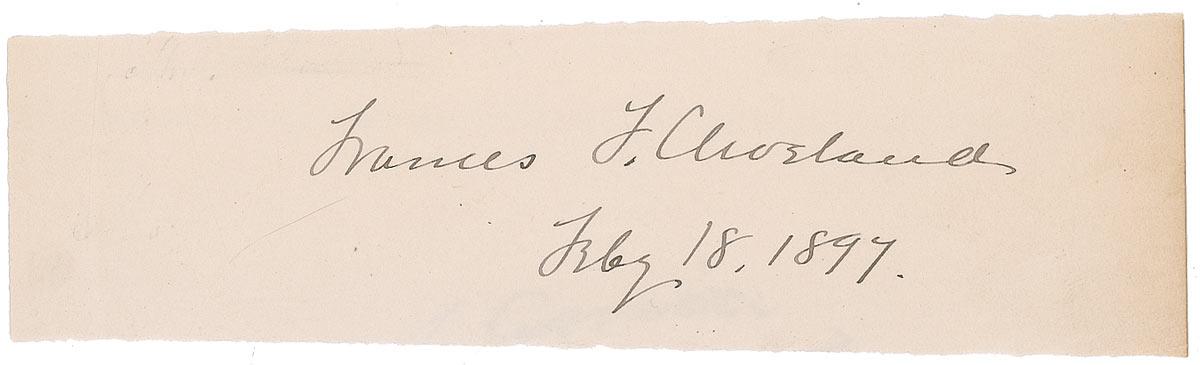 Frances F. Cleveland
Feby 18, 1897.